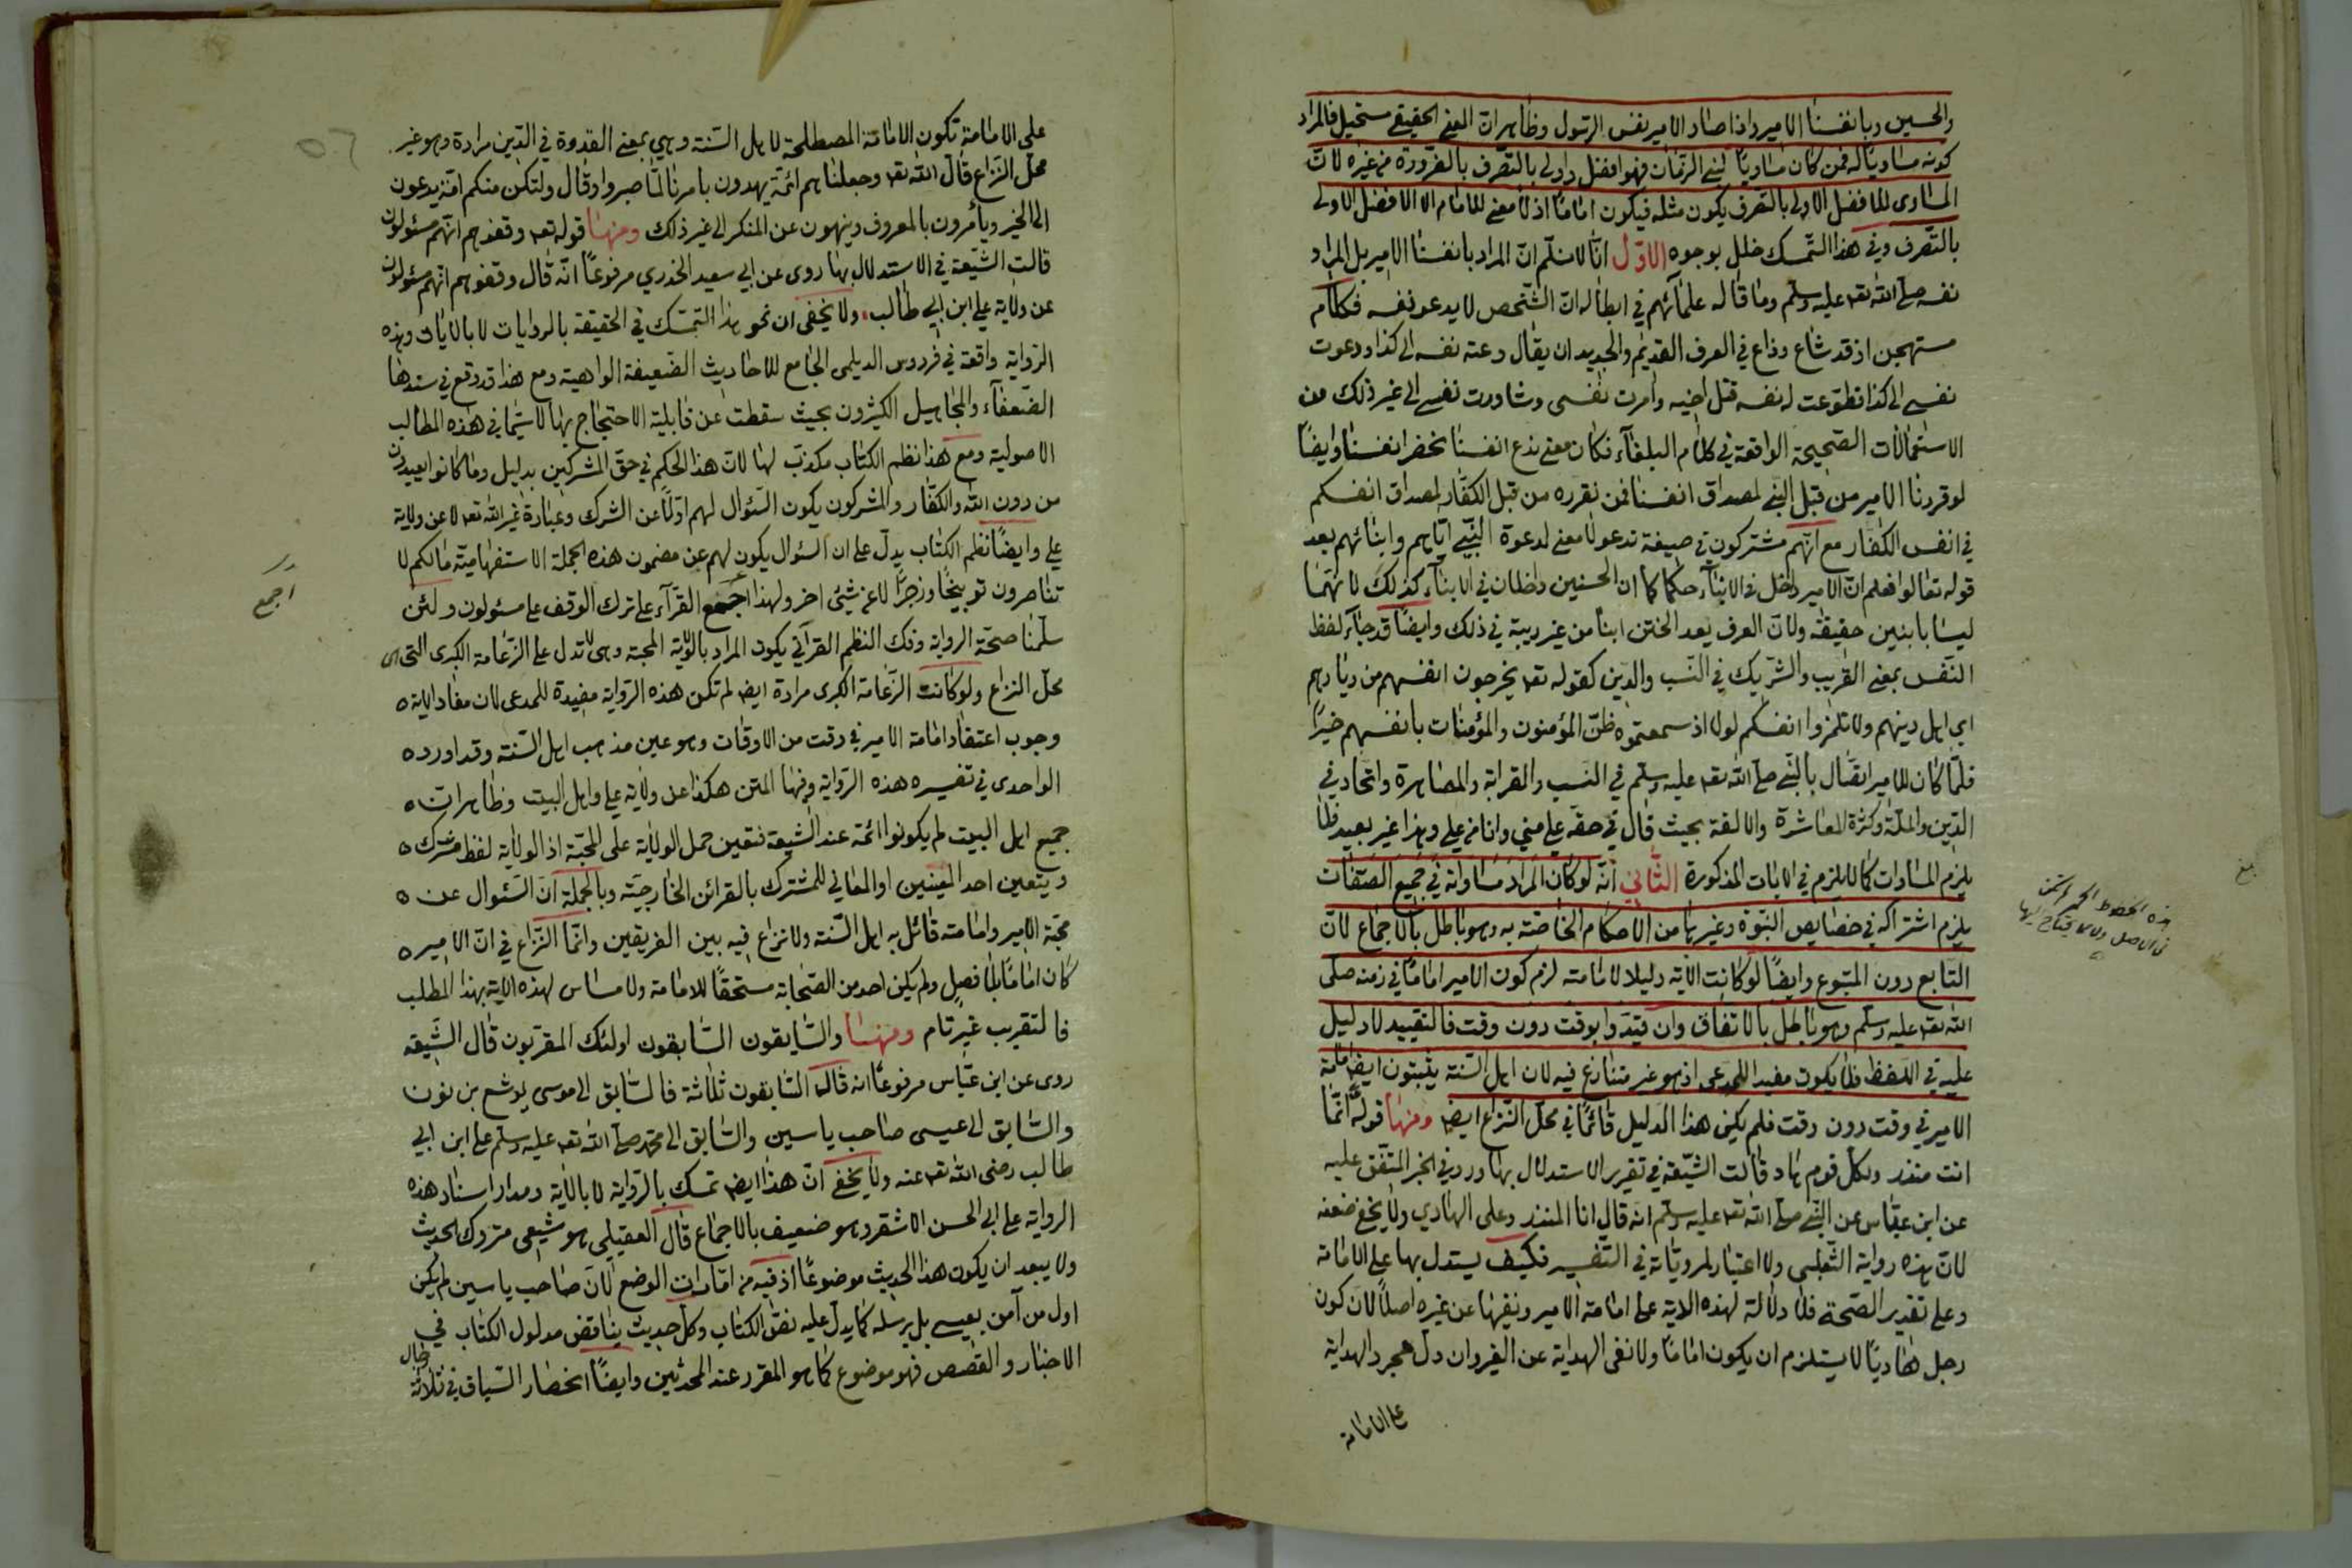 والحسين وبانفسنا الامير واذا صار الامير نفس الرسول وظاهر ان المعنى الحقيقي مستحيل فالمراد
كونه مساويا له فمن كان مساويا لنبي الزمان فهو افضل واولى بالتصرف بالضرورة من غيره لان
المساوى للافضل الاولى بالتصرف يكون مثله فيكون اماما اذ لا معنى للامام الا الافضل الاولى
بالتصرف وفي هذا التمسك خلل بوجوه الاول انا لا نسلم ان المراد بانفسنا الامير بل المراد
نفسه صلى الله تعه عليه وسلم وما قاله علمائهم في ابطاله ان الشخص لا يدعو نفسه فكلام
مستهجن اذ قد شاع وذاع في العرف القديم والجديد ان يقال دعته نفسه الى كذا ودعوت
نفسي الى كذا فطوعت له نفسه قتل اخيه وامرت نفسى وشاورت نفسي الى غير ذلك من
الاستعمالات الصحيحة الواقعة في كلام البلغآء فكان معنى ندع انفسنا نحضر انفسنا وايضا
لو قررنا الامير من قبل النبي لمصداق انفسنا فمن نقرره من قبل الكفار لمصداق انفسكم
في انفس الكفار مع انهم مشتركون في صيغة ندعو لا معنى لدعوة النبي اياهم وابنائهم بعد
قوله تعالوا فعلم ان الامير داخل في الابنآء حكما كما ان الحسنين داخلان في الابنآء كذلك لانهما
ليسا بابنين حقيقة ولان العرف يعد الختن ابنا من غير ريبة في ذلك وايضا قد جآء لفظ
النفس بمعنى القريب والشريك في النسب والدين كقوله تعه يخرجون انفسهم من ديارهم
اي اهل دينهم ولا تلمزوا انفسكم لولا اذ سمعتموه ظن المؤمنون والمؤمنات بانفسهم خيرا
فلما كان للامير اتصال بالنبي صلى الله تعه عليه وسلم في النسب والقرابة والمصاهرة واتحاد في
الدين والملة وكثرة المعاشرة والالفة بحيث قال في حقه علي مني وانا من علي وهذا غير بعيد فلا
يلزم المساوات كما لا يلزم في الايات المذكورة الثاني انه لو كان المراد مساواته في جميع الصفات
يلزم اشتراكه في خصايص النبوة وغيرها من الاحكام الخاصة به وهو باطل بالاجماع لان
التابع دون المتبوع وايضا لو كانت الاية دليلا لامامته لزم كون الامير اماما في زمنه صلى
الله تعه عليه وسلم وهو باطل بالاتفاق وان قيدوا بوقت دون وقت فالتقييد لا دليل
عليه في اللفظ فلا يكون مفيدا للمدعى اذ هو غير متنازع فيه لان اهل السنة يثبتون ايضا امامة
الامير في وقت دون وقت فلم يكن هذا الدليل قائما في محل النزاع ايضا ومنها قوله انما
انت منذر ولكل قوم هاد قالت الشيعة في تقرير الاستدلال بها ورد في الخبر المتفق عليه
عن ابن عباس عن النبي صلى الله تعه عليه وسلم انه قال انا المنذر وعلى الهادي ولا يخفى ضعفه
لان هذه رواية الثعلبي ولا اعتبار لمروياته في التفسير فكيف يستدل بها على الامامة
وعلى تقدير الصحة فلا دلالة لهذه الاية على امامة الامير ونفيها عن غيره اصلا لان كون
رجل هاديا لا يستلزم ان يكون اماما ولا نفى الهداية عن الغير وان دل بمجرد الهداية
على الامامة
هذه الخطوط الحمر
في الاصل
على الامامة تكون الامامة المصطلحة لاهل السنة وهي بمعنى القدوة في الدين مرادة وهو غير
محل النزاع قال الله تعه وجعلناهم ائمة يهدون بامرنا لما صبروا وقال ولتكن منكم امة يدعون
الى الخير ويأمرون بالمعروف وينهون عن المنكر الى غير ذلك ومنها قوله تعه وقفوهم انهم مسئولون
قالت الشيعة في الاستدلال بها روى عن ابي سعيد الخدري مرفوعا انه قال وقفوهم انهم مسئولون
عن ولاية علي ابن ابي طالب ولا يخفى ان نحو هذا التمسك في الحقيقة بالروايات لا بالايات وهذه
الرواية واقعة في فردوس الديلمى الجامع للاحاديث الضعيفة الواهية ومع هذا قد وقع في سندها
الضعفآء والمجاهيل الكثيرون بحيث سقطت عن قابلية الاحتجاج بها لا سيما في هذه المطالب
الاصولية ومع هذا نظم الكتاب مكذب لها لان هذا الحكم في حق المشركين بدليل وما كانوا يعبدون
من دون الله والكفار والمشركون يكون السئوال لهم اولا عن الشرك وعبادة غير الله تعه لا عن ولاية
علي وايضا نظم الكتاب يدل على ان السئوال يكون لهم عن مضمون هذه الجملة الاستفهامية مالكم لا
تناصرون توبيخا وزجرا لا عن شئ اخر ولهذا اجمع القرآء على ترك الوقف على مسئولون ولئن
سلمنا صحة الرواية وفك النظم القرآني يكون المراد بالولاية المحبة وهي لا تدل على الزعامة الكبرى التي هي
محل النزاع ولو كانت الزعامة الكبرى مرادة ايضا لم تكن هذه الرواية مفيدة للمدعى لان مفاد الاية
وجوب اعتقاد امامة الامير في وقت من الاوقات وهو عين مذهب اهل السنة وقد اورده
الواحدى في تفسيره هذه الرواية وفيها المتن هكذا عن ولاية علي واهل البيت وظاهر ان
جميع اهل البيت لم يكونوا ائمة عند الشيعة فتعين حمل الولاية على المحبة اذ الولاية لفظ مشترك
ويتعين احد المعنيين او المعاني للمشترك بالقرائن الخارجية وبالجملة ان السئوال عن
محبة الامير وامامته قائل به اهل السنة ولا نزاع فيه بين الفريقين وانما النزاع في ان الامير
كان اماما بلا فصل ولم يكن احد من الصحابة مستحقا للامامة ولا مساس لهذه الاية بهذا المطلب
فالتقريب غير تام ومنها والسابقون السابقون اولئك المقربون قال الشيعة
روى عن ابن عباس مرفوعا انه قال السابقون ثلاثة فالسابق الى موسى يوشع بن نون
والسابق الى عيسى صاحب ياسين والسابق الى محمد صلى الله تعه عليه وسلم علي ابن ابي
طالب رضى الله تعه عنه ولا يخفى ان هذا ايضا تمسك بالرواية لا بالاية ومدار اسناد هذه
الرواية على ابى الحسن الاشقر وهو ضعيف بالاجماع قال العقيلي هو شيعي متروك الحديث
ولا يبعد ان يكون هذا الحديث موضوعا اذ فيه من امارات الوضع لان صاحب ياسين لم يكن
اول من آمن بعيسى بل برسله كما يدل عليه نص الكتاب وكل حديث يناقض مدلول الكتاب في
الاخبار والقصص فهو موضوع كما هو المقرر عند المحدثين وايضا انحصار السباق في ثلاثة
اجمع